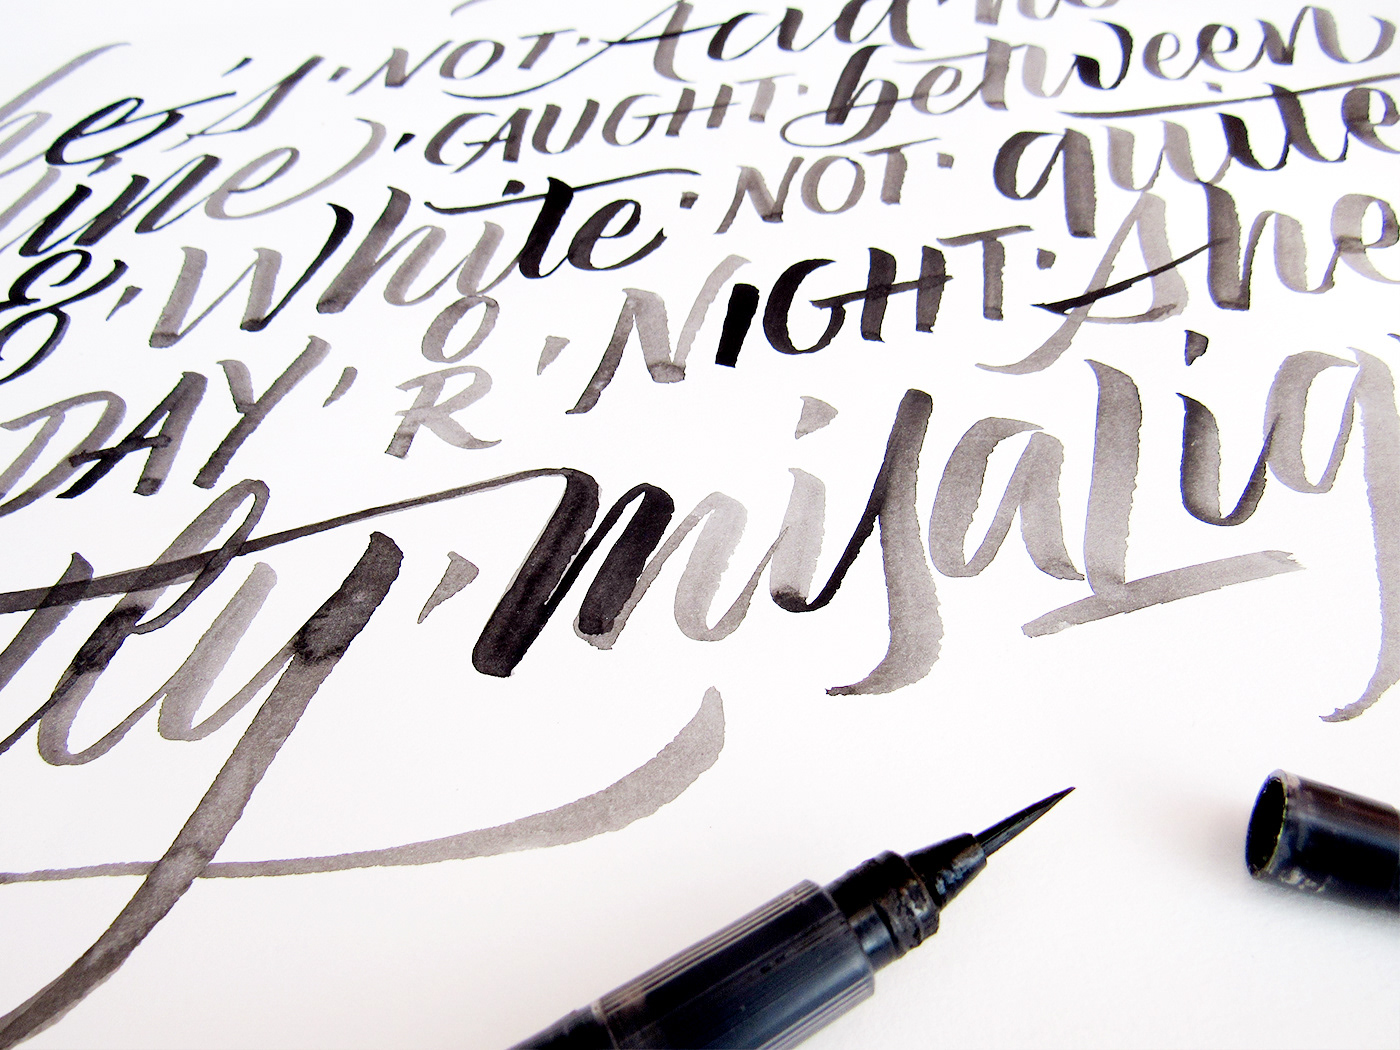 he's NOT Acid no
CAUGHT between
& White NOT quite
DAY OR NIGHT she
tly misalig